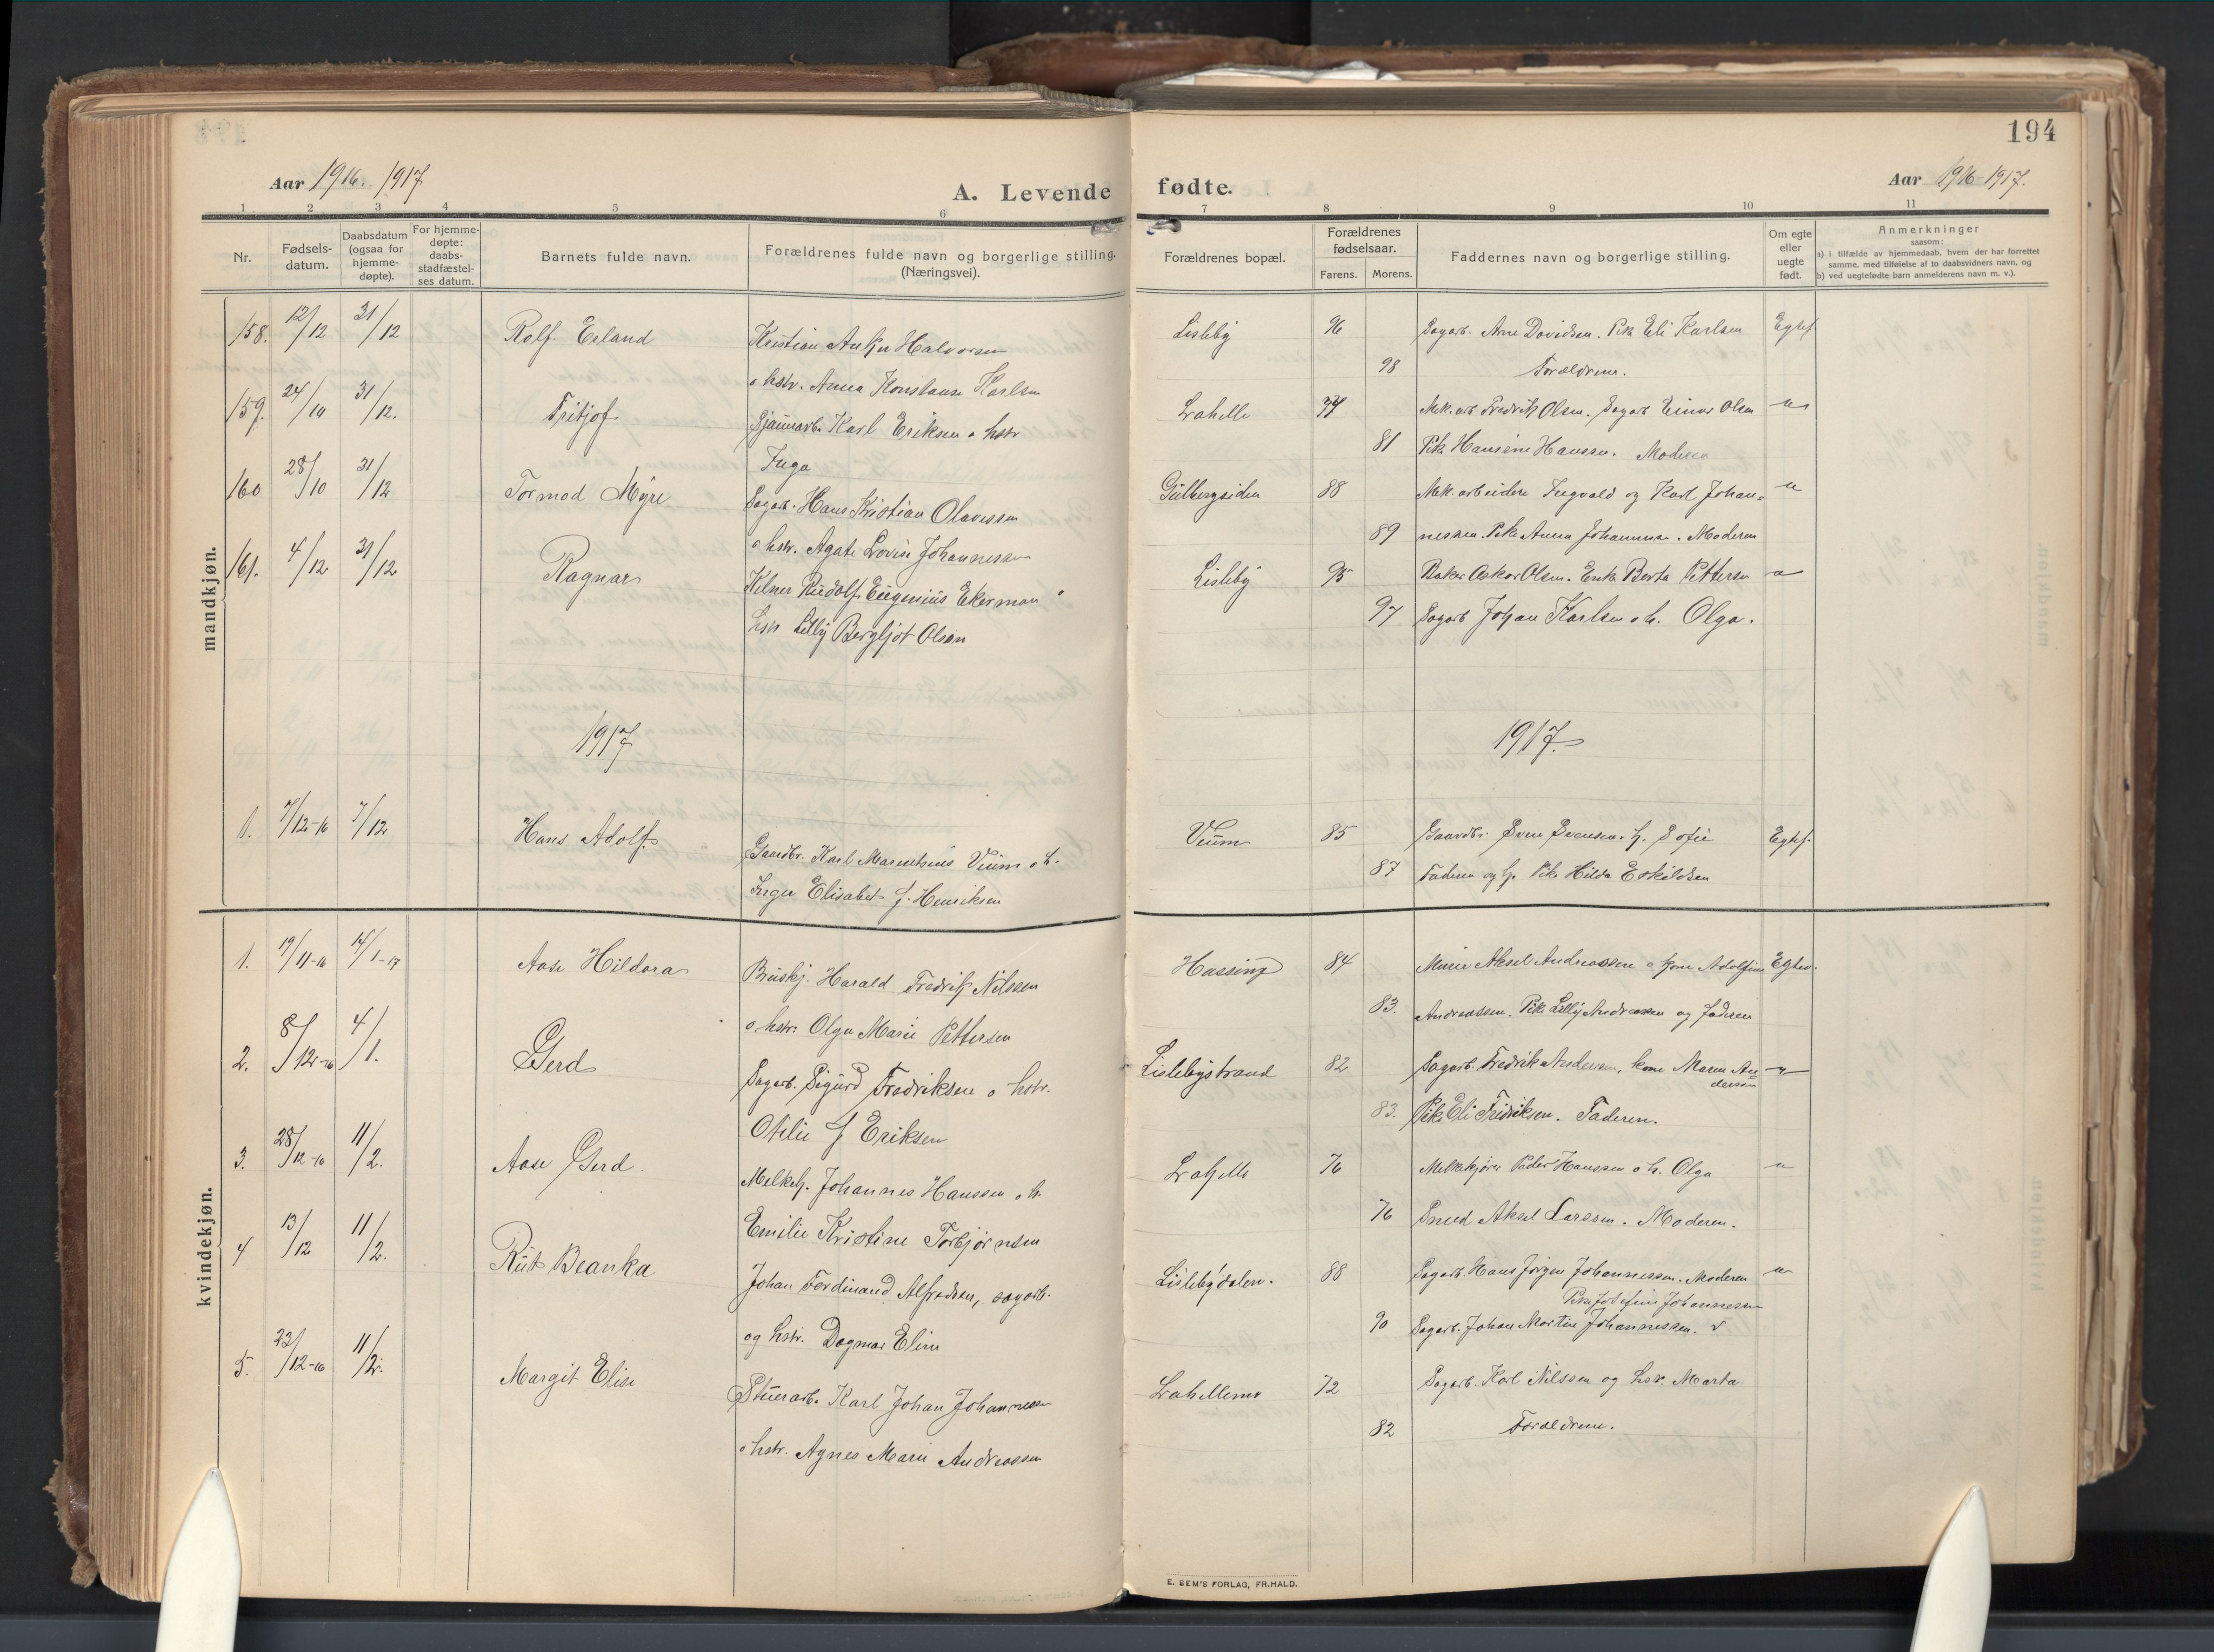 194
Aar 1916. 1917
A. Levende fødte.
Aar 1916-1917.
1 2 3 4 5 6 7 8 9 10 11
Nr.
Fødsels-
datum.
Daabsdatum
(ogsaa for
hjemme-
døpte).
For hjemme-
døpte:
daabs-
stadfæstel-
ses datum.
Barnets fulde navn.
Forældrenes fulde navn og borgerlige stilling.
(Næringsvei).
Forældrenes bopæl.
Forældrenes
fødselsaar.
Farens. Morens.
Faddernes navn og borgerlige stilling.
Om egte
eller
uegte
født.
Anmerkninger
saasom:
a) i tilfælde av hjemmedaab, hvem der har forrettet
samme, med tilføielse af to daabsvidners navn, og
b) ved uegtefødte barn anmelderens navn m. v.).
mandkjøn.
158. 12/12 31/12 Rolf Erland Kristian Anker Halvorsen Lisleby 96 Sagarb. Arne Davidsen. Pike Eli Karlsen Egtef.
o hstr. Anna Konstanse Karlsen 98 Forældrene.
159. 24/10 31/12. Fritjof Karl Eriksen o hstr Lahelle 77 Mek. arb Fredrik Olsen. Sagarb Einar Olsen "
Inga 81 Pike Hansine Hanssen. Moderen
160 28/10 31/12 Tormod Myre Sagarb. Hans Kristian Olavessen Gülbergsiden 88 Mek. arbeidere Ingvald og Karl Johan= "
o hstr. Agate Lovise Johannessen 89 nessen. Pike Anna Johannessen. Moderen
161. 4/12 31/12 Ragnar Kelner Rüdolf Eügeniüs Ekerman o Lisleby 95 Baker Oskar Olsen. Enke Berta Pettersen "
hstr Lilly Bergljot Olsen 97 Sagarb Johan Karlsen o h. Olga.
1917 1917.
1. 7/12-16 7/12 Hans Adolf Gaardbr. Karl Marentsius Veüm o h. Veüm 85 Gaardbr. Sven Svensen. h. Sofie Egtef.
Inger Elisabet f. Henriksen 87 Faderen og h. Pike Hilda Eskildsen
kvindekjøn.
1. 19/11-16 14/1-17 Aase Hildora Brüskj. Harald Fredrik Nilssen Hassing 84 Murer Aksel Andreassen o kone Adolfine Egtev.
o. hstr: Olga Marie Pettersen 83. Andreassen. Pike Lilly Andreassen og faderen
2. 8/12-16 4/1. Gerd Sagarb. Sigurd Fredriksen o hstr. Lislebystrand 82 Sagarb. Fredrik Andersen, kone Maren An= "
dersen
Otelie f Eriksen 83. Pike Eli Fredriksen. Faderen.
3. 28/12-16 11/2. Aase Gerd. Melkeh. Johannes Hanssen o h. Lahelle 76 Melkekjører Peder Hanssen o h. Olga "
Emilie Kristine Torbjørnsen 76 Smed Aksel Larssen. Moderen.
4 13/12 11/2. Rüt Beanka Johan Ferdinand Alfredsen, sagarb. Lislebydalen. 88 Sagarb. Hans Jørgen Johannessen. Moderen "
Pike Josefine Johannessen
og hstr. Dagmar Eline 90 Sagarb. Johan Martin Johannessen. v
5. 23/12-16 11/2. Margit Elise Karl Johan Johannessen Lahellemo 72 Sagarb. Karl Nilssen og hstr. Marta
o hstr. Agnes Marie Andreassen 82 Forældrene.
E. SEM'S FORLAG, FR.HALD.